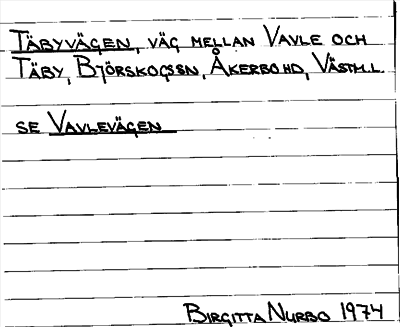 TÄBYVÄGEN, VÄG MELLAN VAVLE OCH
TÄBY, BJÖRSKOGSSN, ÅKERBOHD, VÄSTM.L.
SE VAVLEVÄGEN
BIRGITTA NURBO 1974